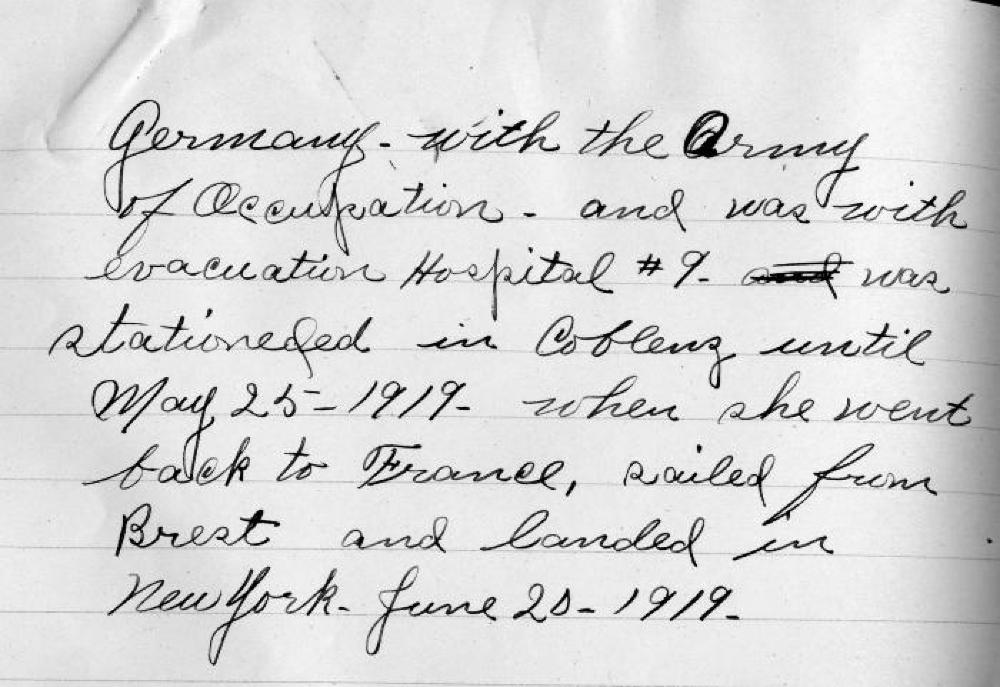 Germany - with the Army
of Occupation - and was with
evacuation Hospital #9 - and was
stationeded in Coblenz until
May 25 - 1919 - when she went
back to France, sailed from
Brest and landed in
New York - June 20 - 1919 -